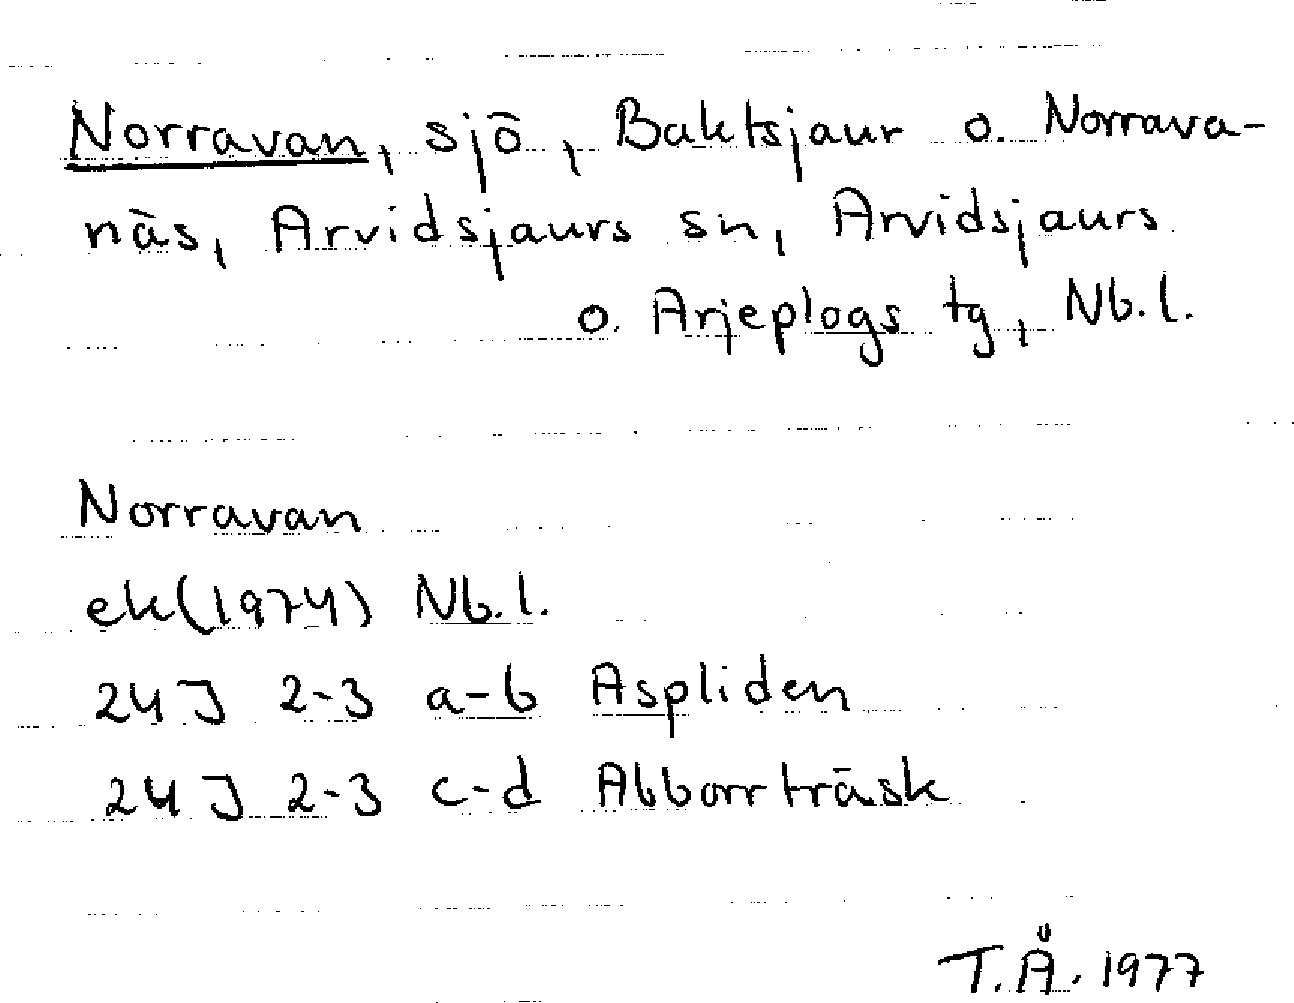 Norravan, sjö, Baktsjaur o. Norrava-
näs, Arvidsjaurs sn, Arvidsjaurs
o. Arjeplogs tg, Nb.l.
Norravan
ek(1974) Nb.l.
24J 2-3 a-b Aspliden
24J 2-3 c-d Abborrträsk
T.Å. 1977